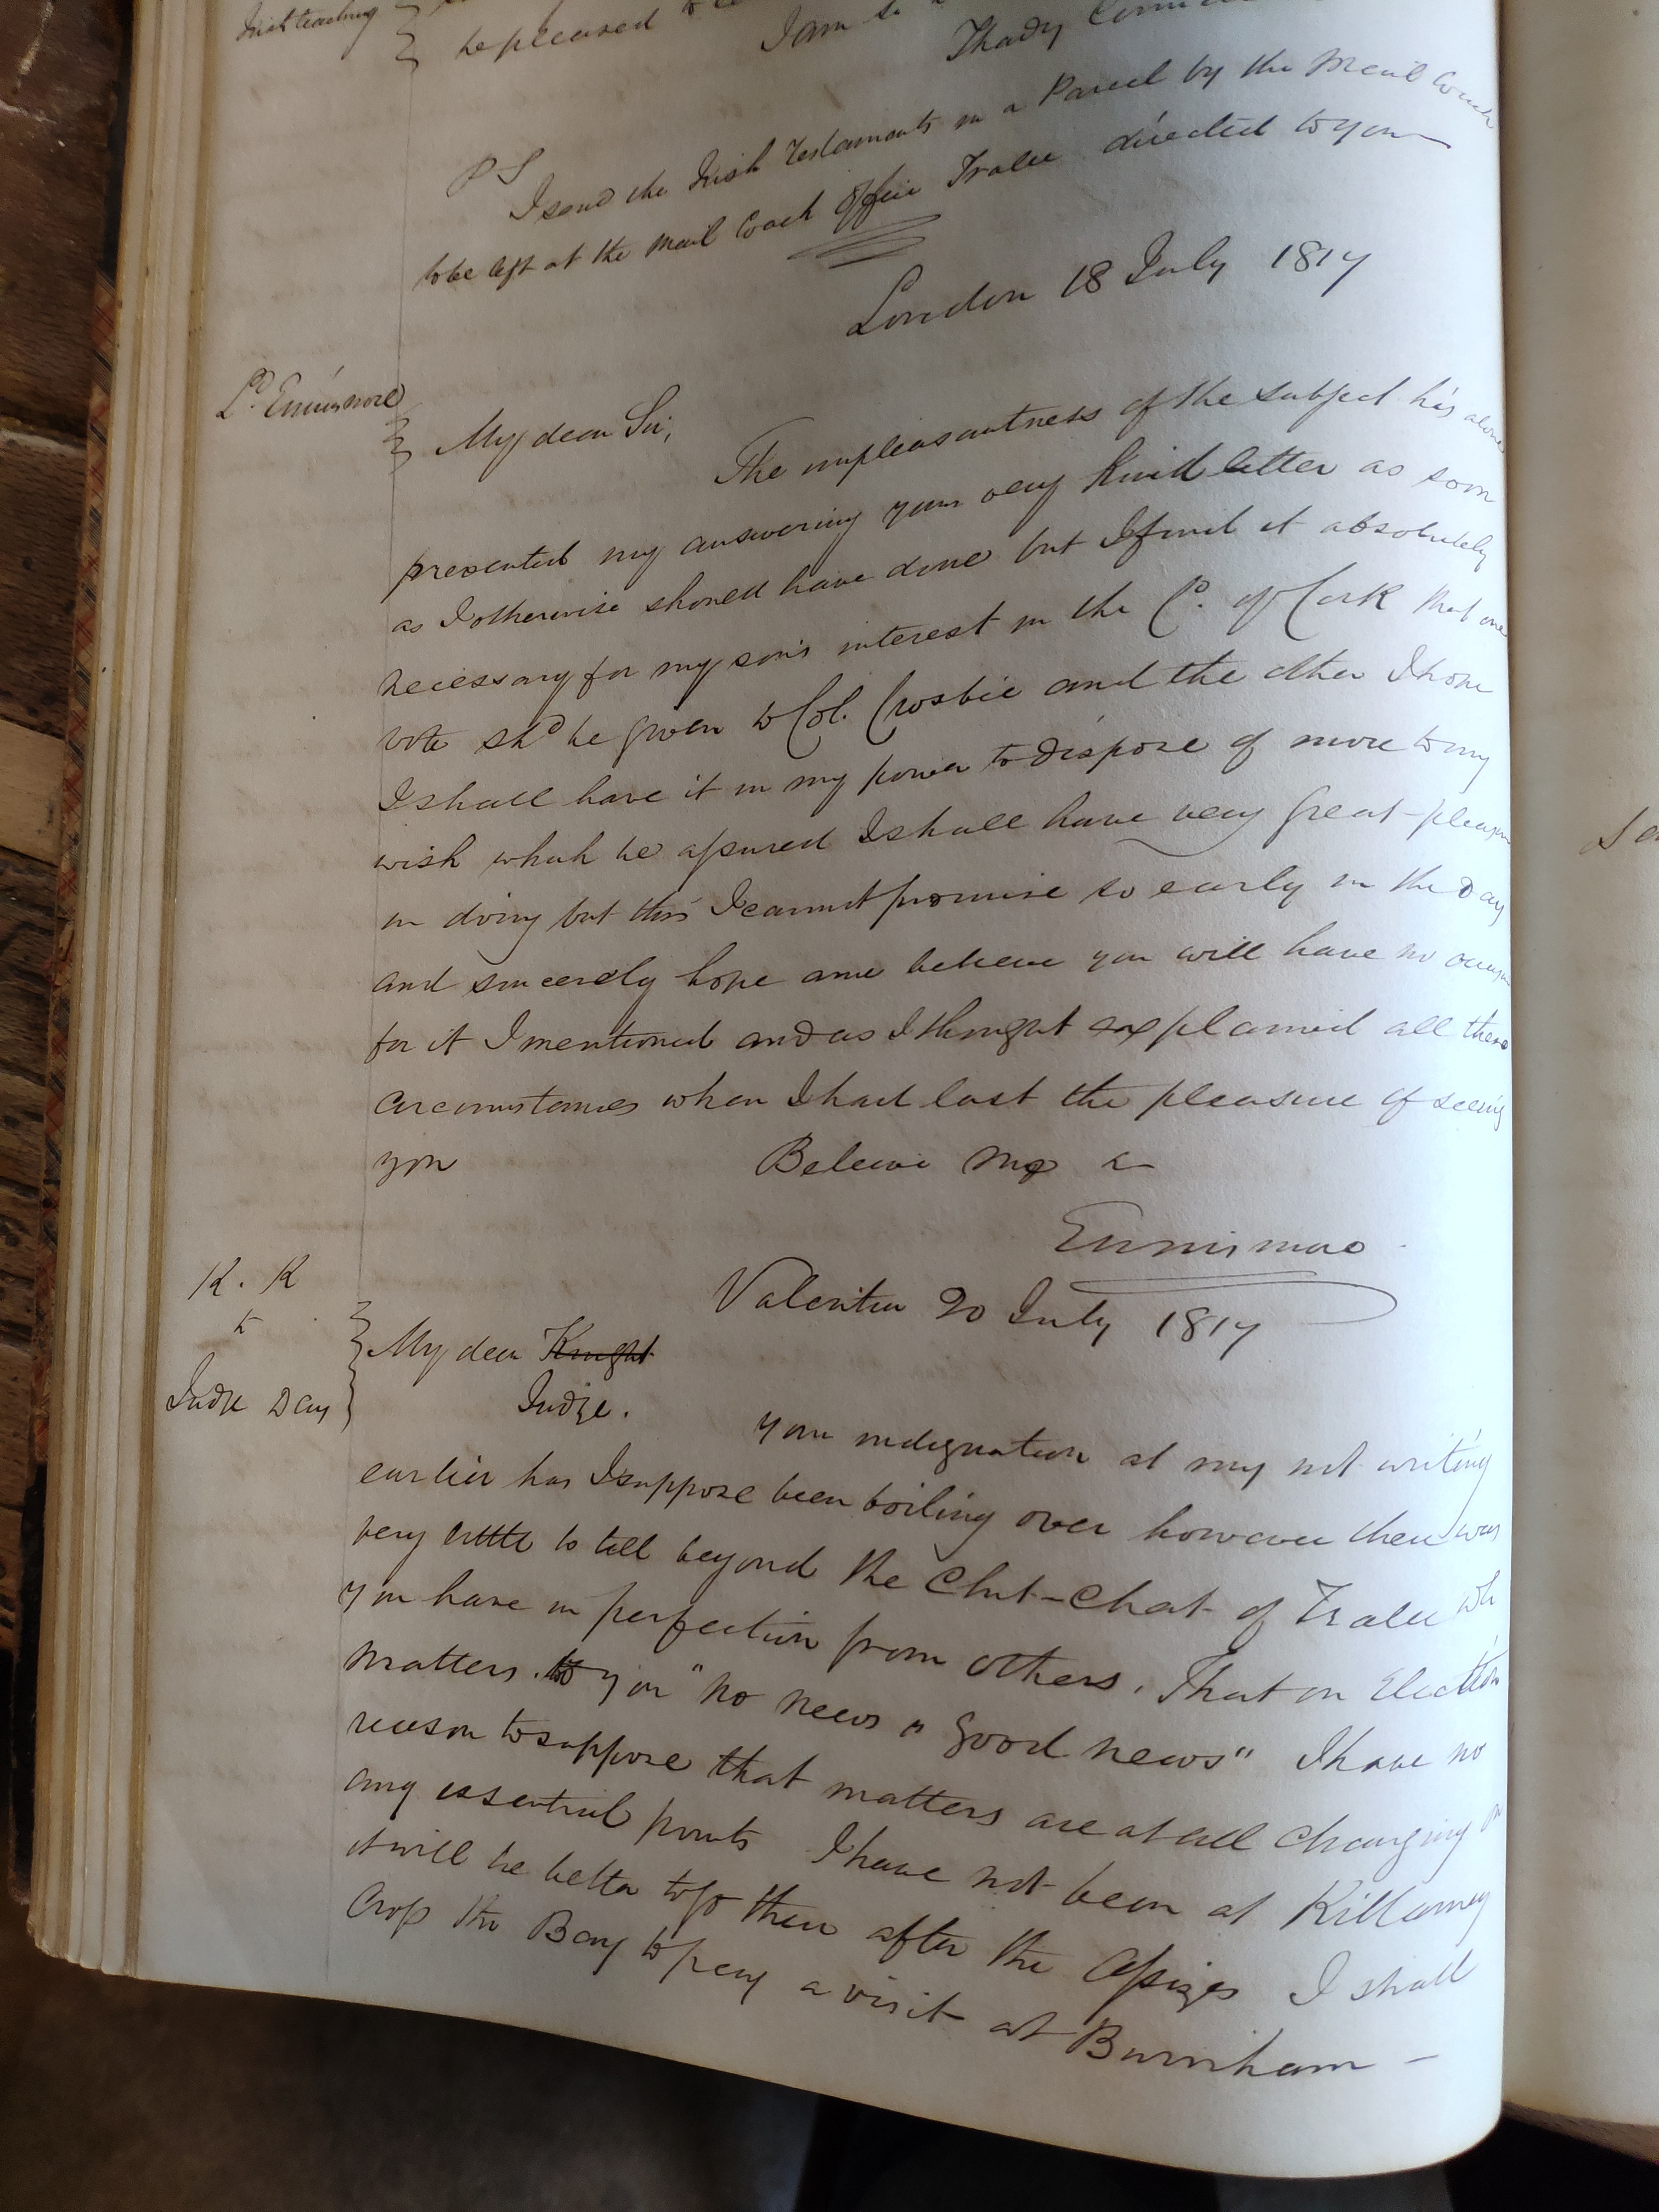 Irish teaching
be pleased to
I am
Thady
PS
I send the Irish Testaments in a Parcel by the Mail Coach
to be left at the Mail Coach Office Tralee directed to you
London 18 July 1817
Ld. Ennismore
My dear Sir,
The unpleasantness of the subject has alone
prevented my answering your very kind letter as soon
as I otherwise should have done but I find it absolutely
necessary for my son's interest in the Co. of Cork that one
vote shd be given to Col. Crosbie and the other I hope
I shall have it in my power to dispose of more to my
wish which be assured I shall have very great pleasure
in doing but this I cannot promise so early in the Day
and sincerely hope and believe you will have no occasion
for it I mentioned and as I thought explained all these
circumstances when I had last the pleasure of seeing
you
Believe me &
Ennismore
Valentia 20 July 1817
K. K
to
Judge Day
My dear Knight
Judge.
Your indignation at my not writing
earlier has I suppose been boiling over however there was
very little to tell beyond the Chit-Chat of Tralee wh
you have in perfection from others. That on Election
matters to you "no news is good news" I have no
reason to suppose that matters are at all changing in
any essential points I have not been at Killarney
it will be better to go there after the Assizes I shall
Cross the Bay to pay a visit at Burnham –